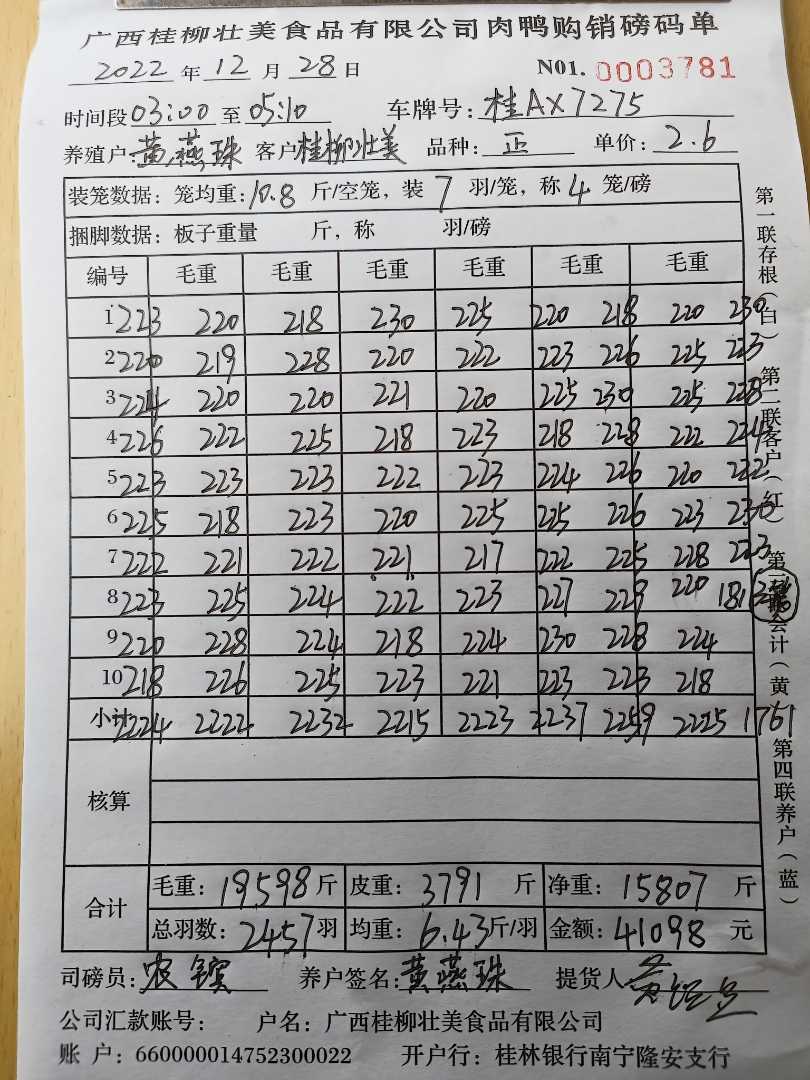 广西桂柳壮美食品有限公司肉鸭购销磅码单
2022 年 12 月 28 日 N01. 0003781
时间段 03:00 至 05:10 车牌号: 桂AX7275
养殖户: 黄燕珠 客户 桂柳壮美 品种: 正 单价: 2.6
装笼数据: 笼均重: 10.8 斤/空笼, 装 7 羽/笼, 称 4 笼/磅
捆脚数据: 板子重量 斤, 称 羽/磅
编号 毛重 毛重 毛重 毛重 毛重 毛重
1 223 220 218 230 225 220 218 220 230
2 220 219 228 220 222 223 226 225 223
3 224 220 220 221 220 225 230 225 228
4 226 222 225 218 223 218 228 222 224
5 223 223 223 222 223 224 226 220 222
6 225 218 223 220 225 225 226 223 230
7 222 221 222 221 217 222 225 228 223
8 223 225 224 222 223 227 229 220 181
9 220 228 224 218 224 230 228 224
10 218 226 225 223 221 223 223 218
小计 2224 2222 2232 2215 2223 2237 2259 2225 1761
核算
合计 毛重: 19598 斤 皮重: 3791 斤 净重: 15807 斤
总羽数: 2457 羽 均重: 6.43 斤/羽 金额: 41098 元
司磅员: 农 养户签名: 黄燕珠 提货人 黄
公司汇款账号: 户名: 广西桂柳壮美食品有限公司
账 户: 660000014752300022 开户行: 桂林银行南宁隆安支行
第一联存根(白) 第二联客户(红) 第三联会计(黄) 第四联养户(蓝)